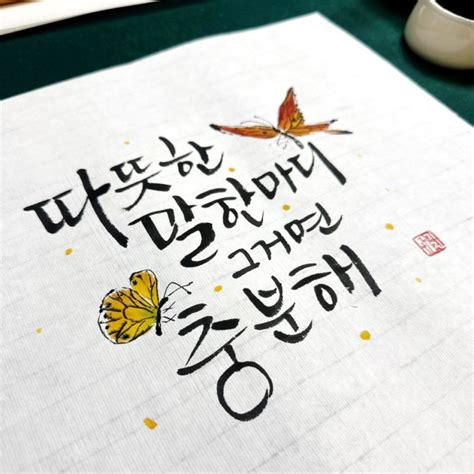 따뜻한
말한마디
그거면
충분해